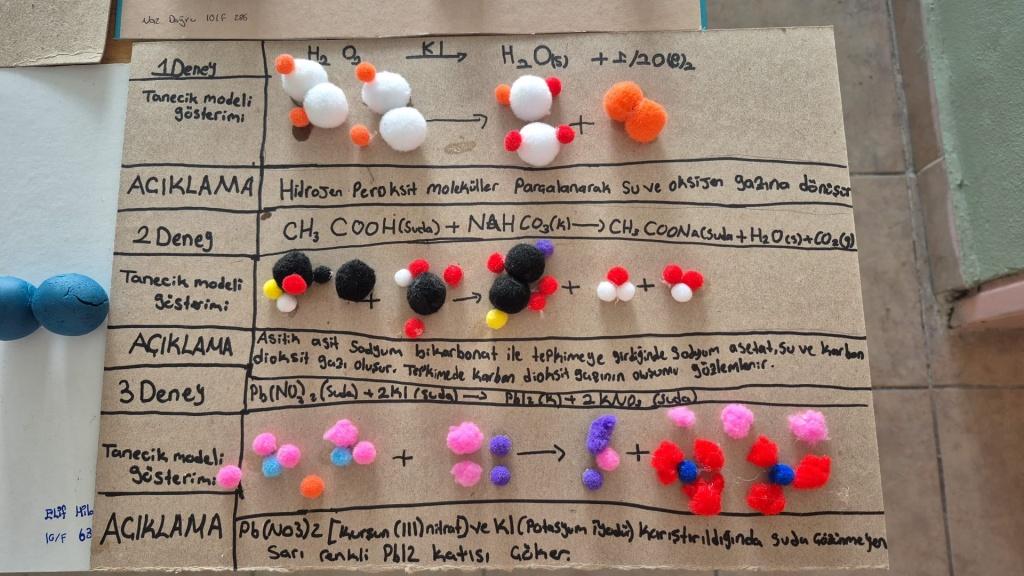 Naz Doğru 10/F 286
1 Deney
H₂ O₂ KI→ H₂O(s) + 1/2O(g)₂
Tanecik modeli
gösterimi
→ +
AÇIKLAMA
Hidrojen Peroksit moleküller Parçalanarak su ve oksijen gazına dönüşür
2 Deney
CH₃ COOH(suda) + NAHCO₃(k) → CH₃ COONa(suda + H₂O(s)+CO₂(g)
Tanecik modeli
gösterimi
+ → + +
AÇIKLAMA
Asitik asit Sodyum bikarbonat ile tepkimeye girdiğinde Sodyum asetat, su ve karbon
dioksit gazı oluşur. Tepkimede karbon dioksit gazının oluşumu gözlemlenir.
3 Deney
Pb(NO₃)₂(suda) + 2KI (suda) → PbI₂(k) + 2KNO₃ (suda)
Tanecik modeli
gösterimi
+ → +
AÇIKLAMA
Pb(NO3)2 [Kurşun (III) nitrat) ve KI (Potasyum iyodür) karıştırıldığında suda çözünmeyen
Sarı renkli PbI2 katısı Çöker.
Elif
10/F